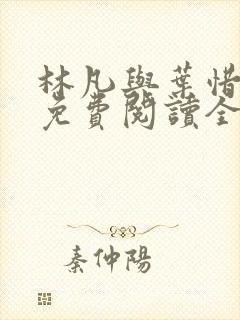 林凡與葉惜
免費閱讀全
秦仲陽